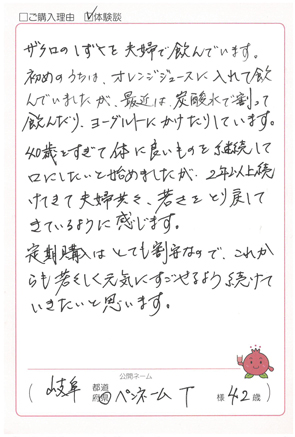 □ご購入理由 ☑体験談
ザクロのしずくを夫婦で飲んでいます。
初めのうちは、オレンジジュースに入れて飲
んでいましたが、最近は、炭酸水で割って
飲んだり、ヨーグルトにかけたりしています。
40歳をすぎて体に良いものを継続して
口にしたいと始めましたが、2年以上続
けてきて夫婦共々、若さをとり戻して
きているように感じます。
定期購入はとても割安なので、これか
らも若々しく元気にすごせるよう続けて
いきたいと思います。
公開ネーム
(岐阜 都道府県 ペンネーム T 様 42歳)